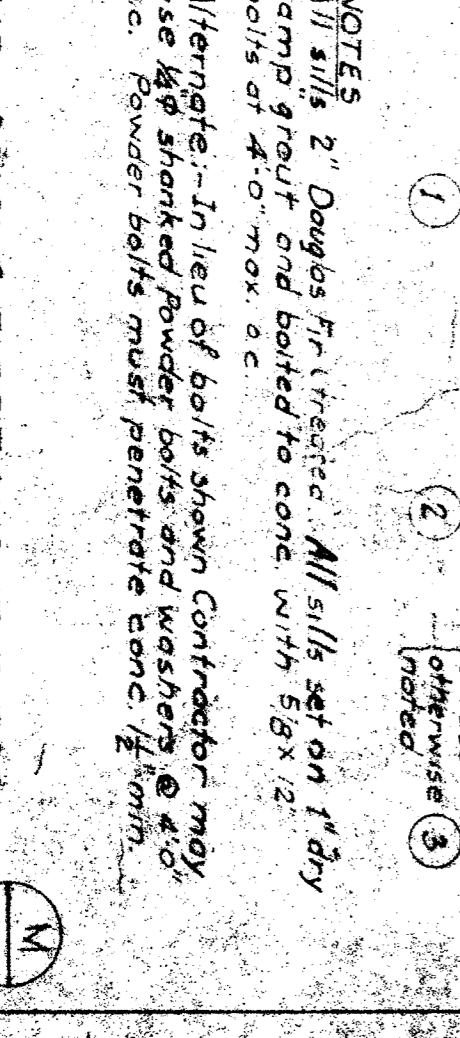 1
2
otherwise
noted
3
NOTES
All sills 2" Douglas Fir (treated. All sills set on 1" dry
amp grout and bolted to conc. with 5/8 x 12"
olts at 4'-0" max. o.c.
lternate:- In lieu of bolts shown Contractor may
se ¼"φ shanked Powder bolts and washers @ 4'0"
c. Powder bolts must penetrate conc. 1½" min.
M